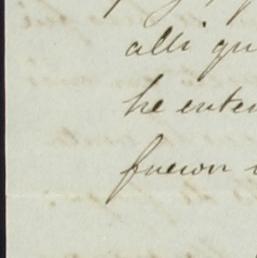 alli qu
he enten
fueron